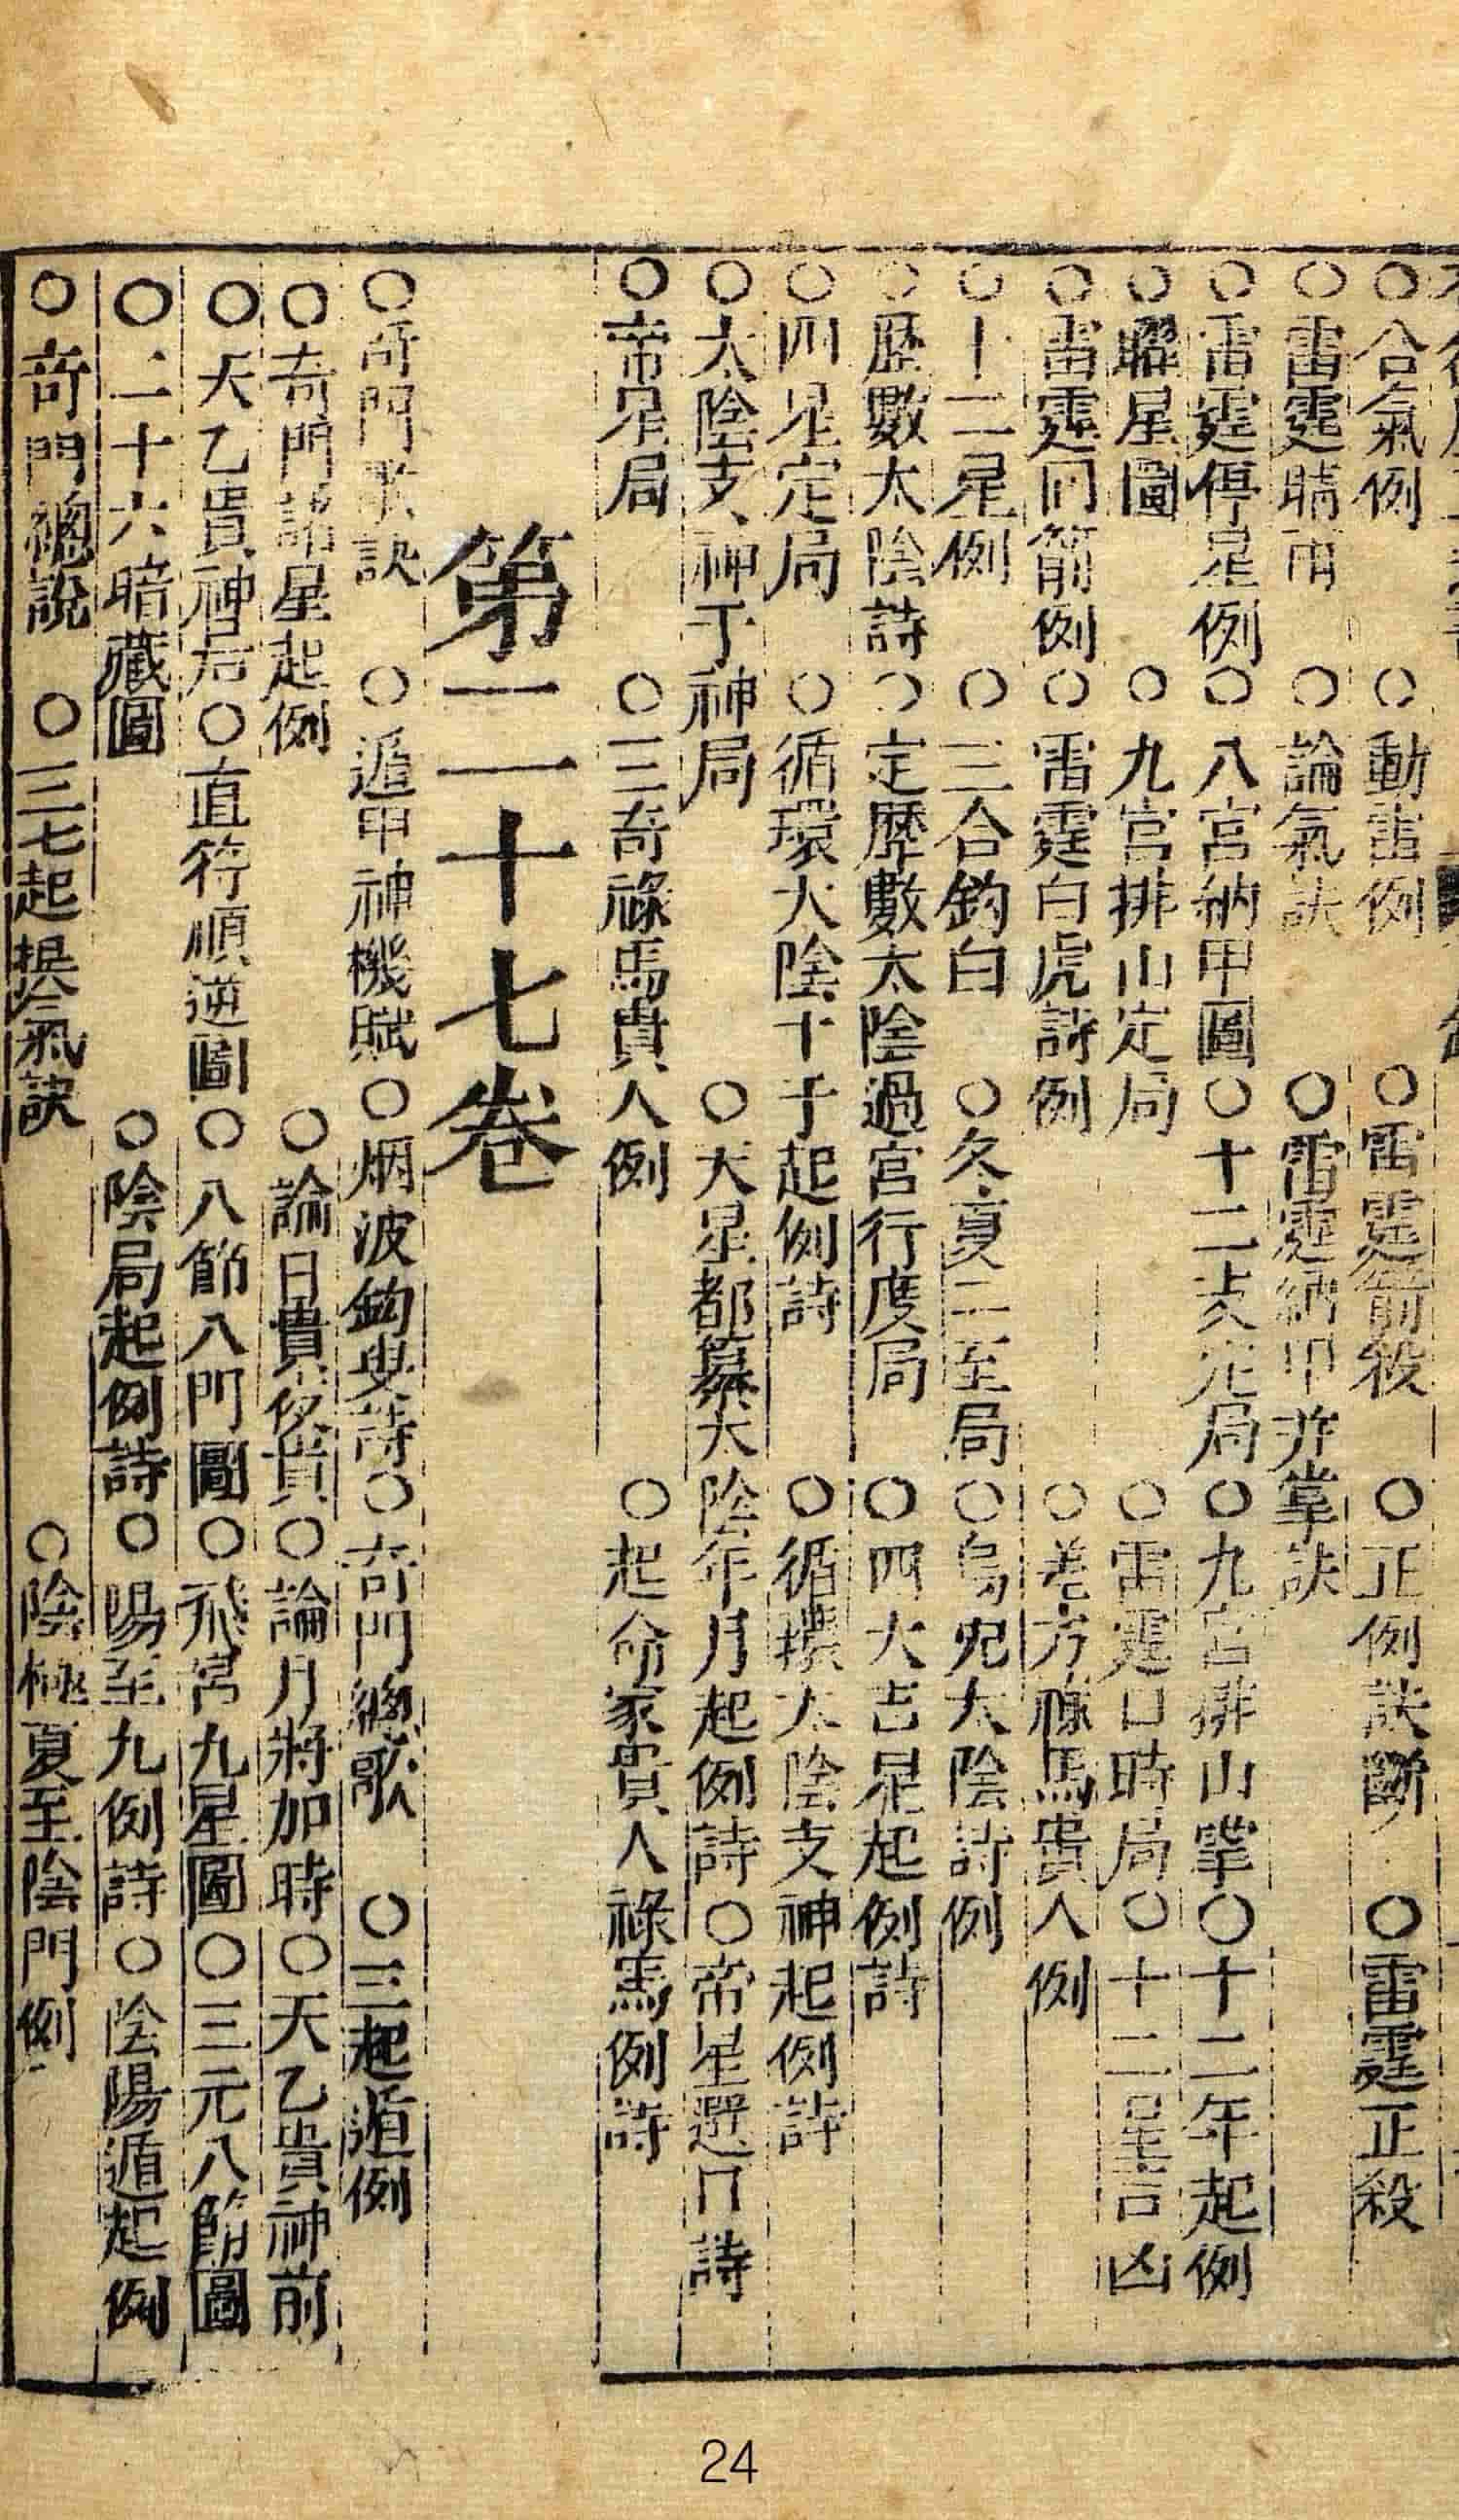 ○合氣例○動雷例○雷霆箭殺○正例訣斷○雷霆正殺
○雷霆晴雨○論氣訣○雷霆納甲并掌訣
○雷霆停星例○八宮納甲圖○十二定局○九宮排山掌○十二年起例
○躔星圖○九宮排山定局○雷霆日時局○十二星吉凶
○雷霆同箭例○雷霆白虎詩例○差方祿馬貴人例
○十二星例○三合鈎白○冬夏二至局○烏兔太陰詩例
○歷數太陰詩○定歷數太陰過宮行度局○四大吉星起例詩
○四星定局○循環太陰十于起例詩○循環太陰支神起例詩
○太陰支神于神局○天星都纂太陰年月起例詩○帝星選日詩
○帝星局○三奇祿馬貴人例○起命家貴人祿馬例詩
第二十七卷
○奇門歌訣○遁甲神機賦○烟波釣叟詩○奇門總歌○三起遁例
○奇門諸星起例○論日貴夜貴○論月將加時○天乙貴神前
○天乙貴神后○直符順逆圖○八節八門圖○飛宮九星圖○三元八節圖
○二十六暗藏圖○陰局起例詩○陽至九例詩○陰陽遁起例
○奇門總說○三七起換氣訣○陰極夏至陰門例
24